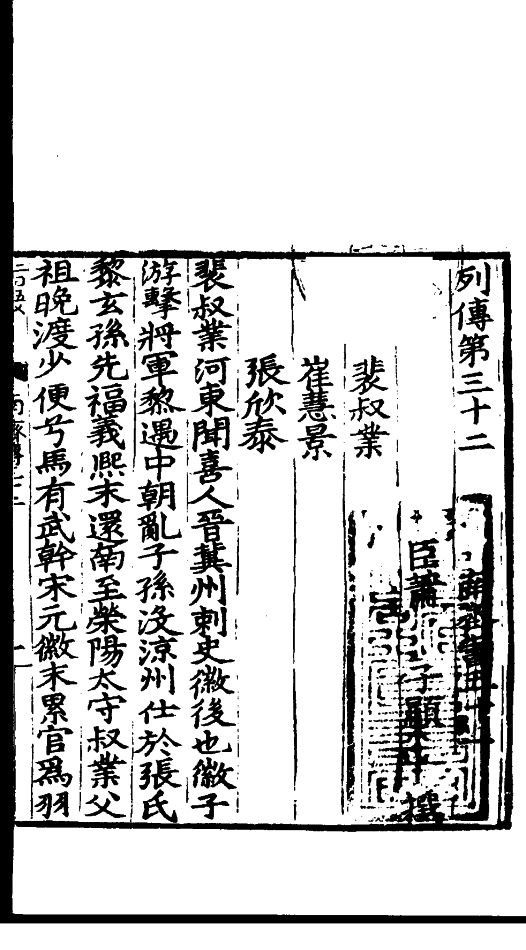 列傳第三十二　南齊書五十一
臣蕭子顯撰
裴叔業
崔慧景
張欣泰
裴叔業河東聞喜人晉冀州刺史徽後也徽子
游擊將軍黎遇中朝亂子孫沒涼州仕於張氏
黎玄孫先福義熙末還南至榮陽太守叔業父
祖晚渡少便弓馬有武幹宋元徽末累官爲羽